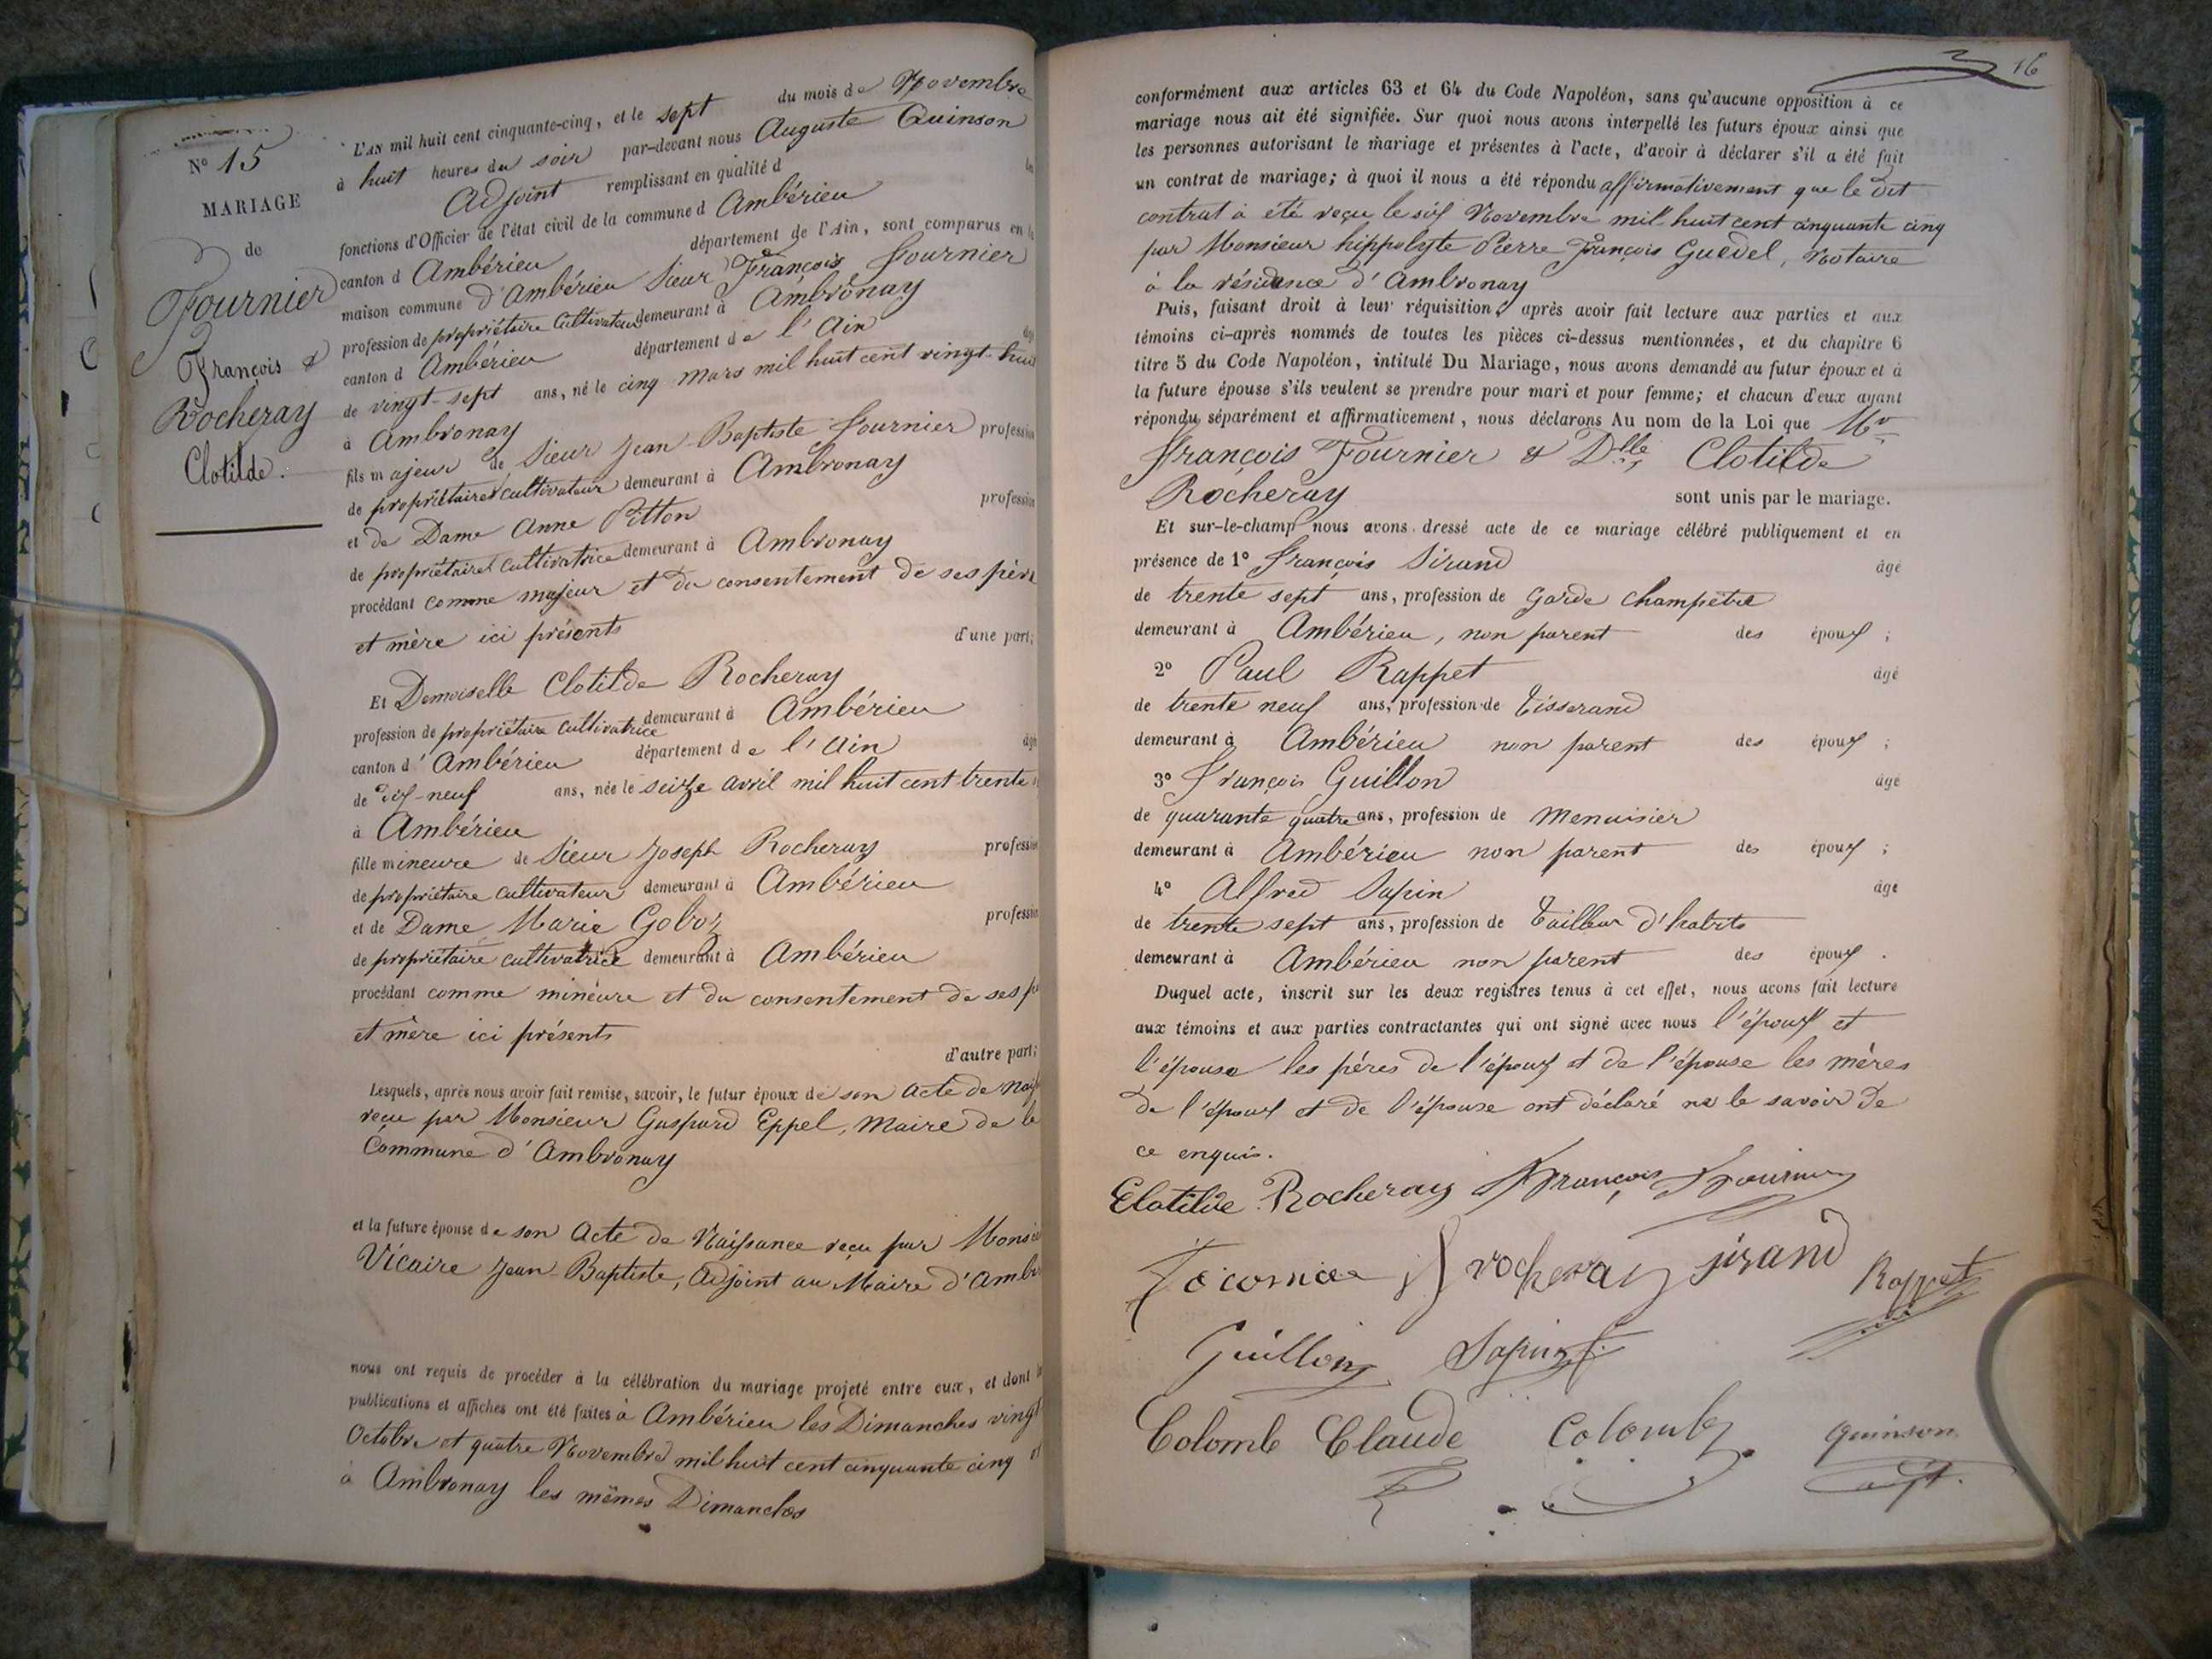 N° 15
MARIAGE
de
Fournier
François &
Rocheray
Clotilde.
L'AN mil huit cent cinquante-cinq, et le sept du mois de Novembre
à huit heures du soir par-devant nous Auguste Quinson
Adjoint remplissant en qualité d
fonctions d'Officier de l'état civil de la commune d Ambérieu
canton d Ambérieu département de l'Ain, sont comparus en la
maison commune d'Ambérieu Sieur François Fournier
profession de propriétaire Cultivateur demeurant à Ambronay
canton d Ambérieu département de l'Ain
de vingt-sept ans, né le cinq Mars mil huit cent vingt-huit
à Ambronay
fils majeur de Sieur Jean-Baptiste Fournier profession
de propriétaire cultivateur demeurant à Ambronay
et de Dame Anne Pitton profession
de propriétaire cultivatrice demeurant à Ambronay
procédant comme majeur et du consentement de ses père
et mère ici présents d'une part;
Et Demoiselle Clotilde Rocheray
profession de propriétaire cultivatrice demeurant à Ambérieu
canton d'Ambérieu département de l'Ain âgé
de dix-neuf ans, née le seize avril mil huit cent trente
à Ambérieu
fille mineure de Sieur Joseph Rocheray profession
de propriétaire cultivateur demeurant à Ambérieu
et de Dame Marie Goboz profession
de propriétaire cultivatrice demeurant à Ambérieu
procédant comme mineure et du consentement de ses
et mère ici présents
d'autre part;
Lesquels, après nous avoir fait remise, savoir, le futur époux de son acte de
reçu par Monsieur Gaspard Eppel, Maire de la
Commune d'Ambronay
et la future épouse de son Acte de Naissance reçu par
Vicaire Jean-Baptiste, Adjoint au Maire d'
nous ont requis de procéder à la célébration du mariage projeté entre eux, et dont
publications et affiches ont été faites à Ambérieu les Dimanches vingt
Octobre et quatre Novembre mil huit cent cinquante cinq et
à Ambronay les mêmes Dimanches
16
conformément aux articles 63 et 64 du Code Napoléon, sans qu'aucune opposition à ce
mariage nous ait été signifiée. Sur quoi nous avons interpellé les futurs époux ainsi que
les personnes autorisant le mariage et présentes à l'acte, d'avoir à déclarer s'il a été fait
un contrat de mariage; à quoi il nous a été répondu affirmativement que le dit
contrat à été reçu le six Novembre mil huit cent cinquante cinq
par Monsieur hippolyte Pierre François Guédel, Notaire
à la résidence d'Ambronay
Puis, faisant droit à leur réquisition, après avoir fait lecture aux parties et aux
témoins ci-après nommés de toutes les pièces ci-dessus mentionnées, et du chapitre 6
titre 5 du Code Napoléon, intitulé Du Mariage, nous avons demandé au futur époux et à
la future épouse s'ils veulent se prendre pour mari et pour femme; et chacun d'eux ayant
répondu séparément et affirmativement, nous déclarons Au nom de la Loi que Mr
François Fournier & Dlle Clotilde
Rocheray sont unis par le mariage.
Et sur-le-champ nous avons dressé acte de ce mariage célébré publiquement et en
présence de 1° François Sirand âgé
de trente sept ans, profession de Garde champêtre
demeurant à Ambérieu, non parent des époux ;
2° Paul Rappet âgé
de trente neuf ans, profession de Tisserand
demeurant à Ambérieu non parent des époux ;
3° François Guillon âgé
de quarante quatre ans, profession de Menuisier
demeurant à Ambérieu non parent des époux ;
4° Alfred Sapin âgé
de trente sept ans, profession de Tailleur d'habits
demeurant à Ambérieu non parent des époux .
Duquel acte, inscrit sur les deux registres tenus à cet effet, nous avons fait lecture
aux témoins et aux parties contractantes qui ont signé avec nous l'époux et
l'épouse les pères de l'époux et de l'épouse les mères
de l'époux et de l'épouse ont déclaré ne le savoir de
ce enquis.
Clotilde Rocheray François Fournier
J rocheray sirand Rappet
Guillon Sapin
Colomb Claude Colomb quinson
adjt.